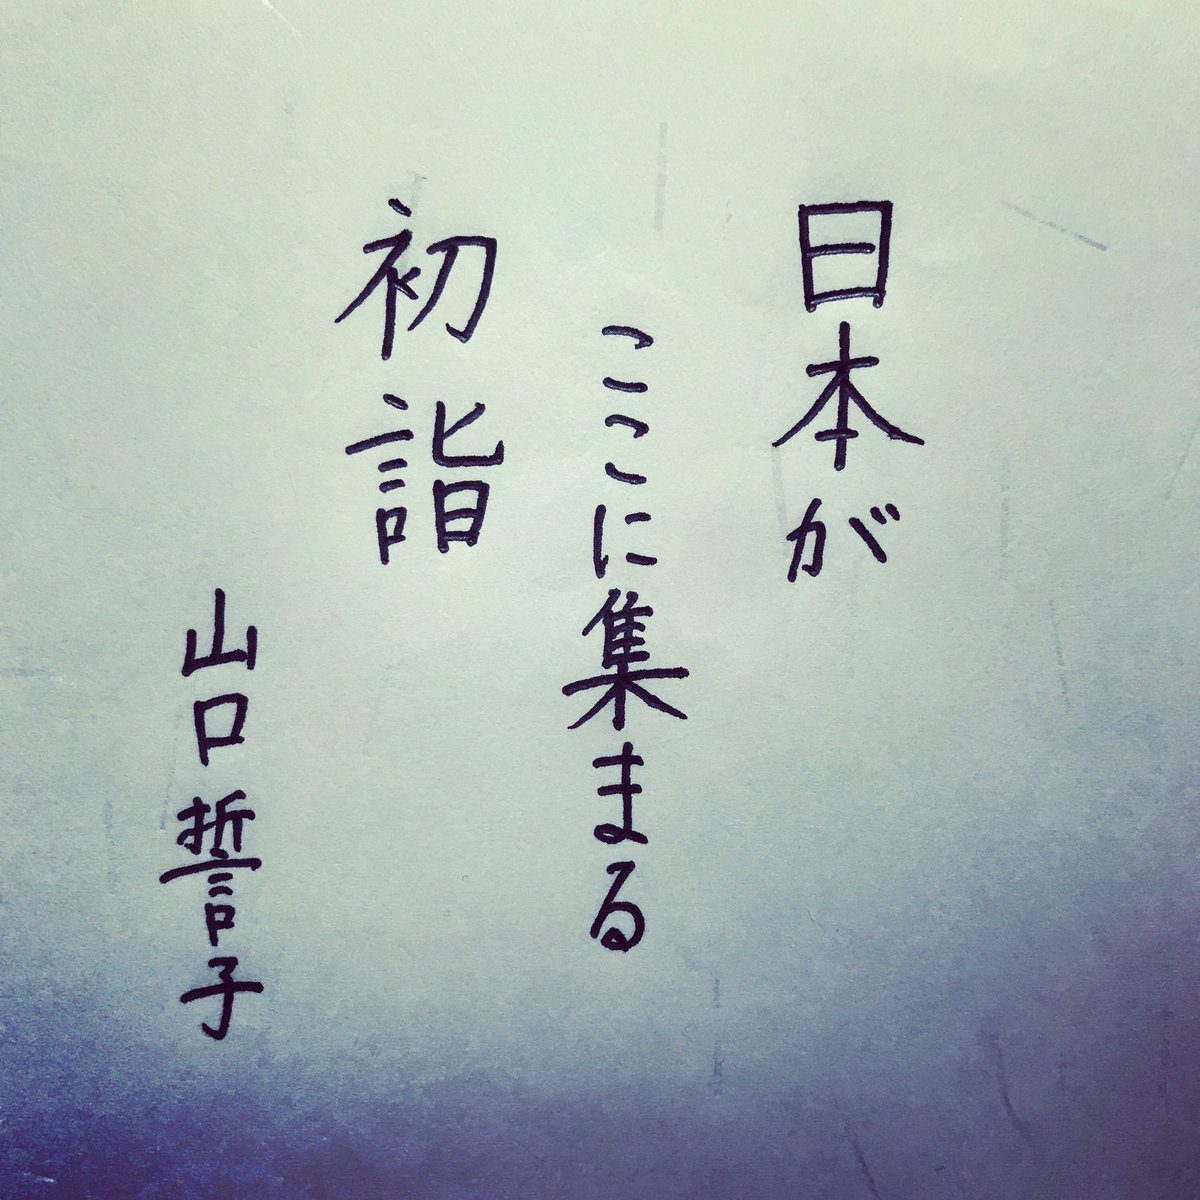 日本が
ここに集まる
初詣
山口誓子